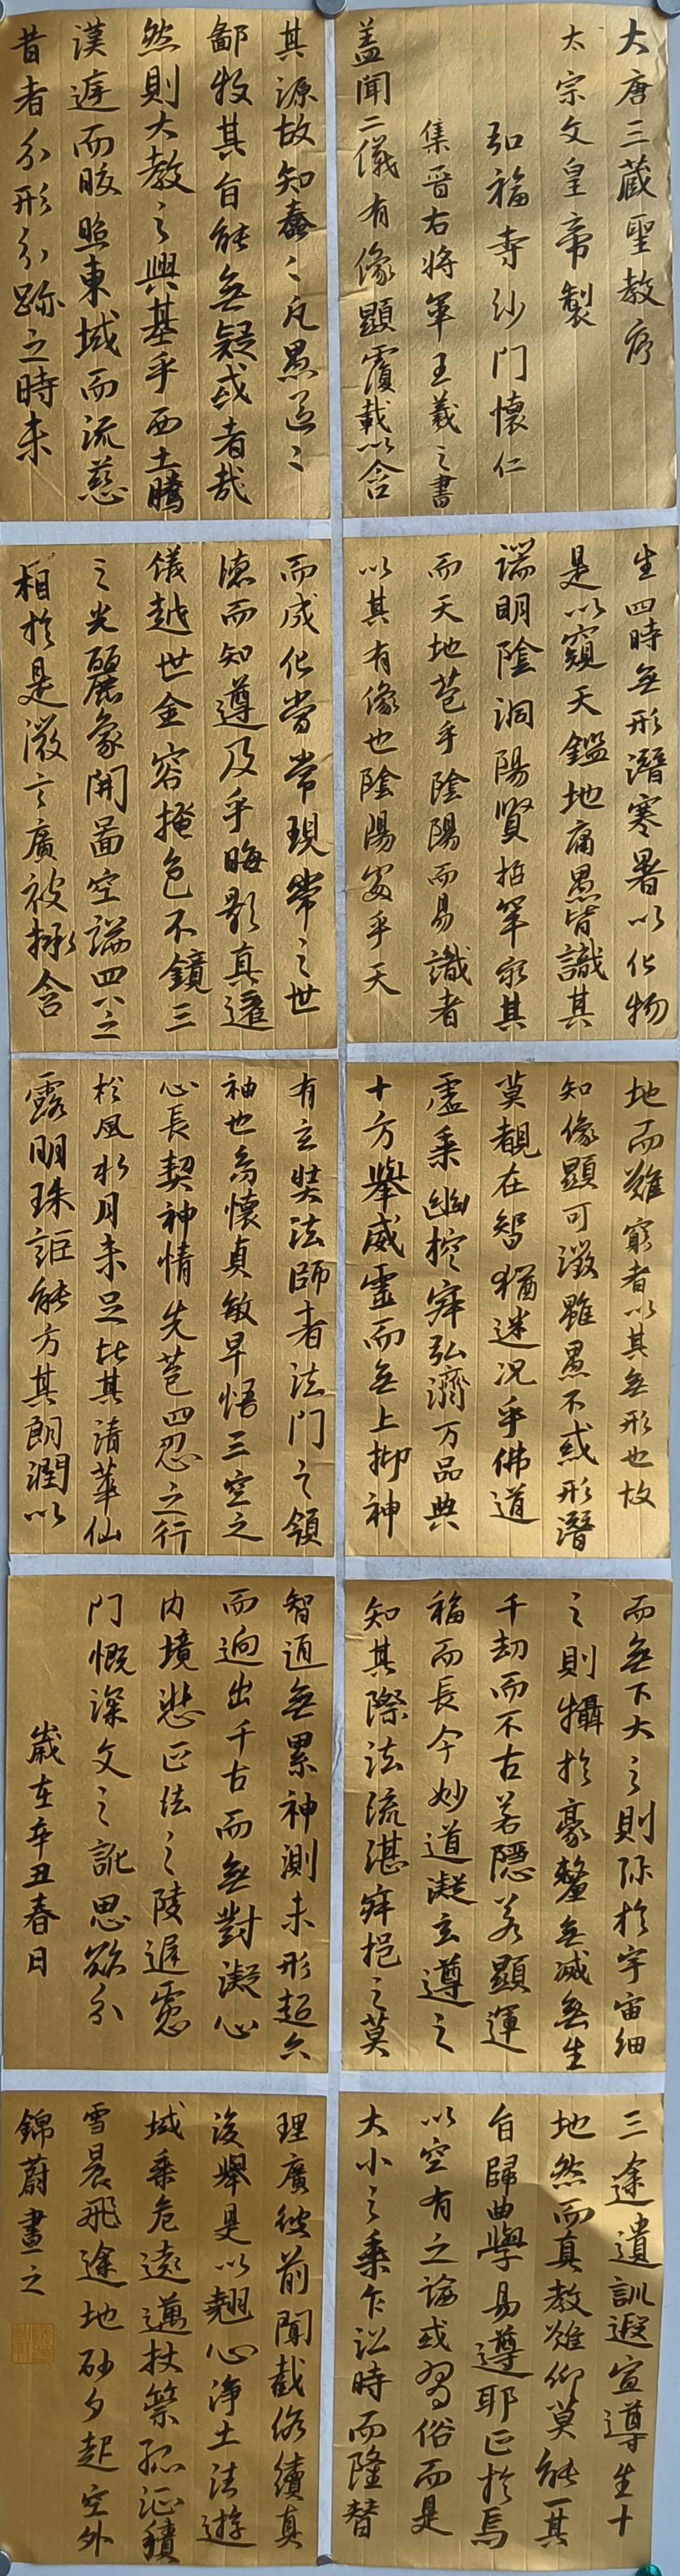 大唐三藏聖教序
太宗文皇帝製
弘福寺沙門懷仁
集晉右將軍王羲之書
蓋聞二儀有像顯覆載以含
生四時無形潛寒暑以化物
是以窺天鑑地庸愚皆識其
端明陰洞陽賢哲罕窮其
而天地苞乎陰陽而易識者
以其有像也陰陽處乎天
地而難窮者以其無形也故
知像顯可徵雖愚不惑形潛
莫覩在智猶迷況乎佛道
虛乘幽控寂弘濟万品典
十方舉威靈而無上抑神
而無下大之則弥於宇宙細
之則攝於豪釐無滅無生
千劫而不古若隱若顯運
福而長今妙道凝玄遵之
知其際法流湛寂挹之莫
其源故知蠢々凡愚區々
鄙牧其旨能無疑或者哉
然則大教之興基乎西土騰
漢庭而皎照東域而流慈
昔者分形分跡之時未
而成化當常現常之世
德而知遵及乎晦影真遷
儀越世金容掩色不鏡三
之光麗象開圖空端四八之
相於是微言廣被拯含
三途遺訓遐宣導生十
地然而真教難仰莫能一其
旨歸曲學易遵耶正於焉
以空有之論或習俗而是
大小之乘乍訟時而隆替
有玄奘法師者法門之領
袖也爲懷貞敏早悟三空之
心長契神情先苞四忍之行
松風水月未足比其清華仙
露明珠詎能方其朗潤以
智通無累神測未形超六
而迥出千古而無對凝心
內境悲正法之陵遲慮
門慨深文之訛思欲分
歲在辛丑春日
理廣彼前聞截偽續真
後學是以翹心淨土法遊
域乘危遠邁杖策孤征積
雪晨飛途地砂夕起空外
錦蔚書之